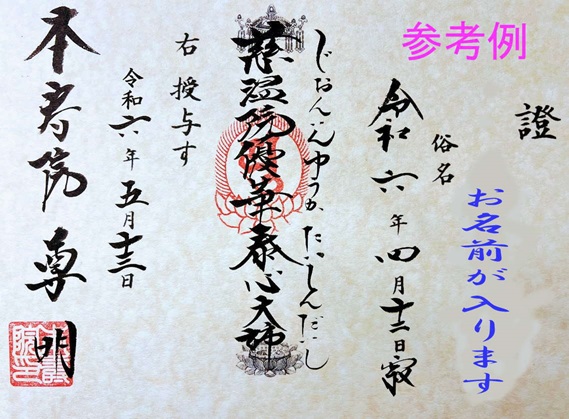 参考例
證
俗名
お名前が入ります
令和六年四月十二日寂
じおんいんゆうか たいしんだいし
慈温院優華泰心大姉
右授与す
令和六年五月十三日
本寿院 専明